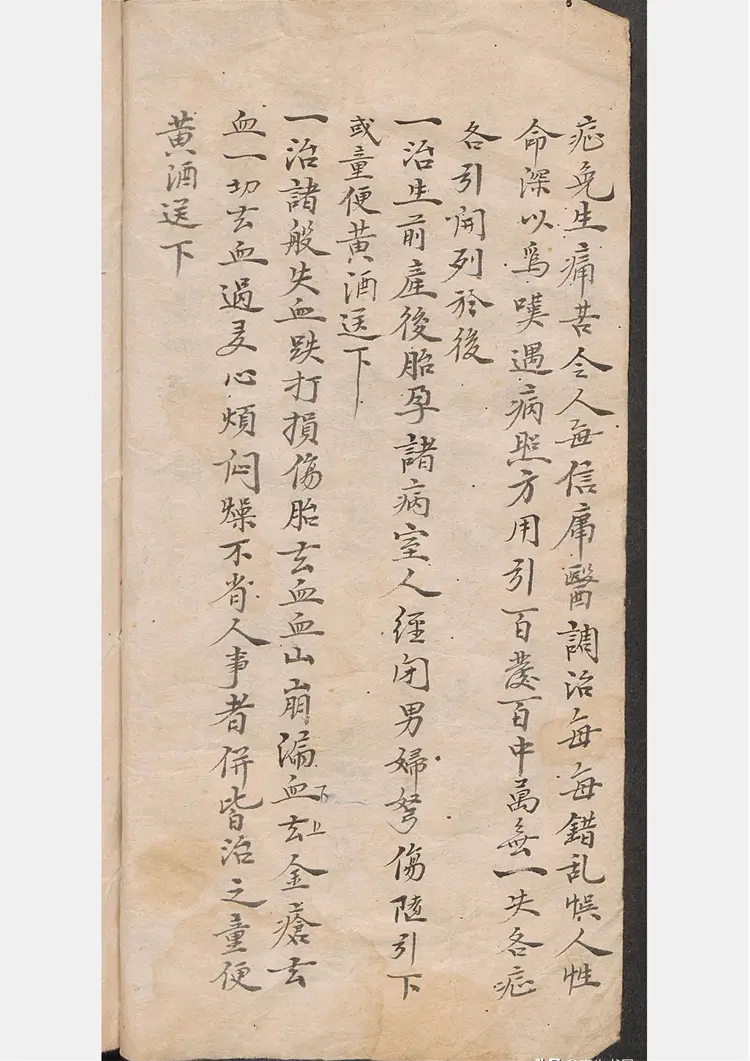 症免生痛苦今人每信庸醫調治每每錯乱悮人性
命深以爲嘆遇病照方用引百發百中萬無一失各症
各引開列於後
一治生前産後胎孕諸病室人經闭男婦弩傷隨引下
或童便黄酒送下
一治諸般失血跌打損傷胎去血血山崩漏血下去上金瘡去
血一切去血過多心煩闷燥不省人事者併皆治之童便
黄酒送下